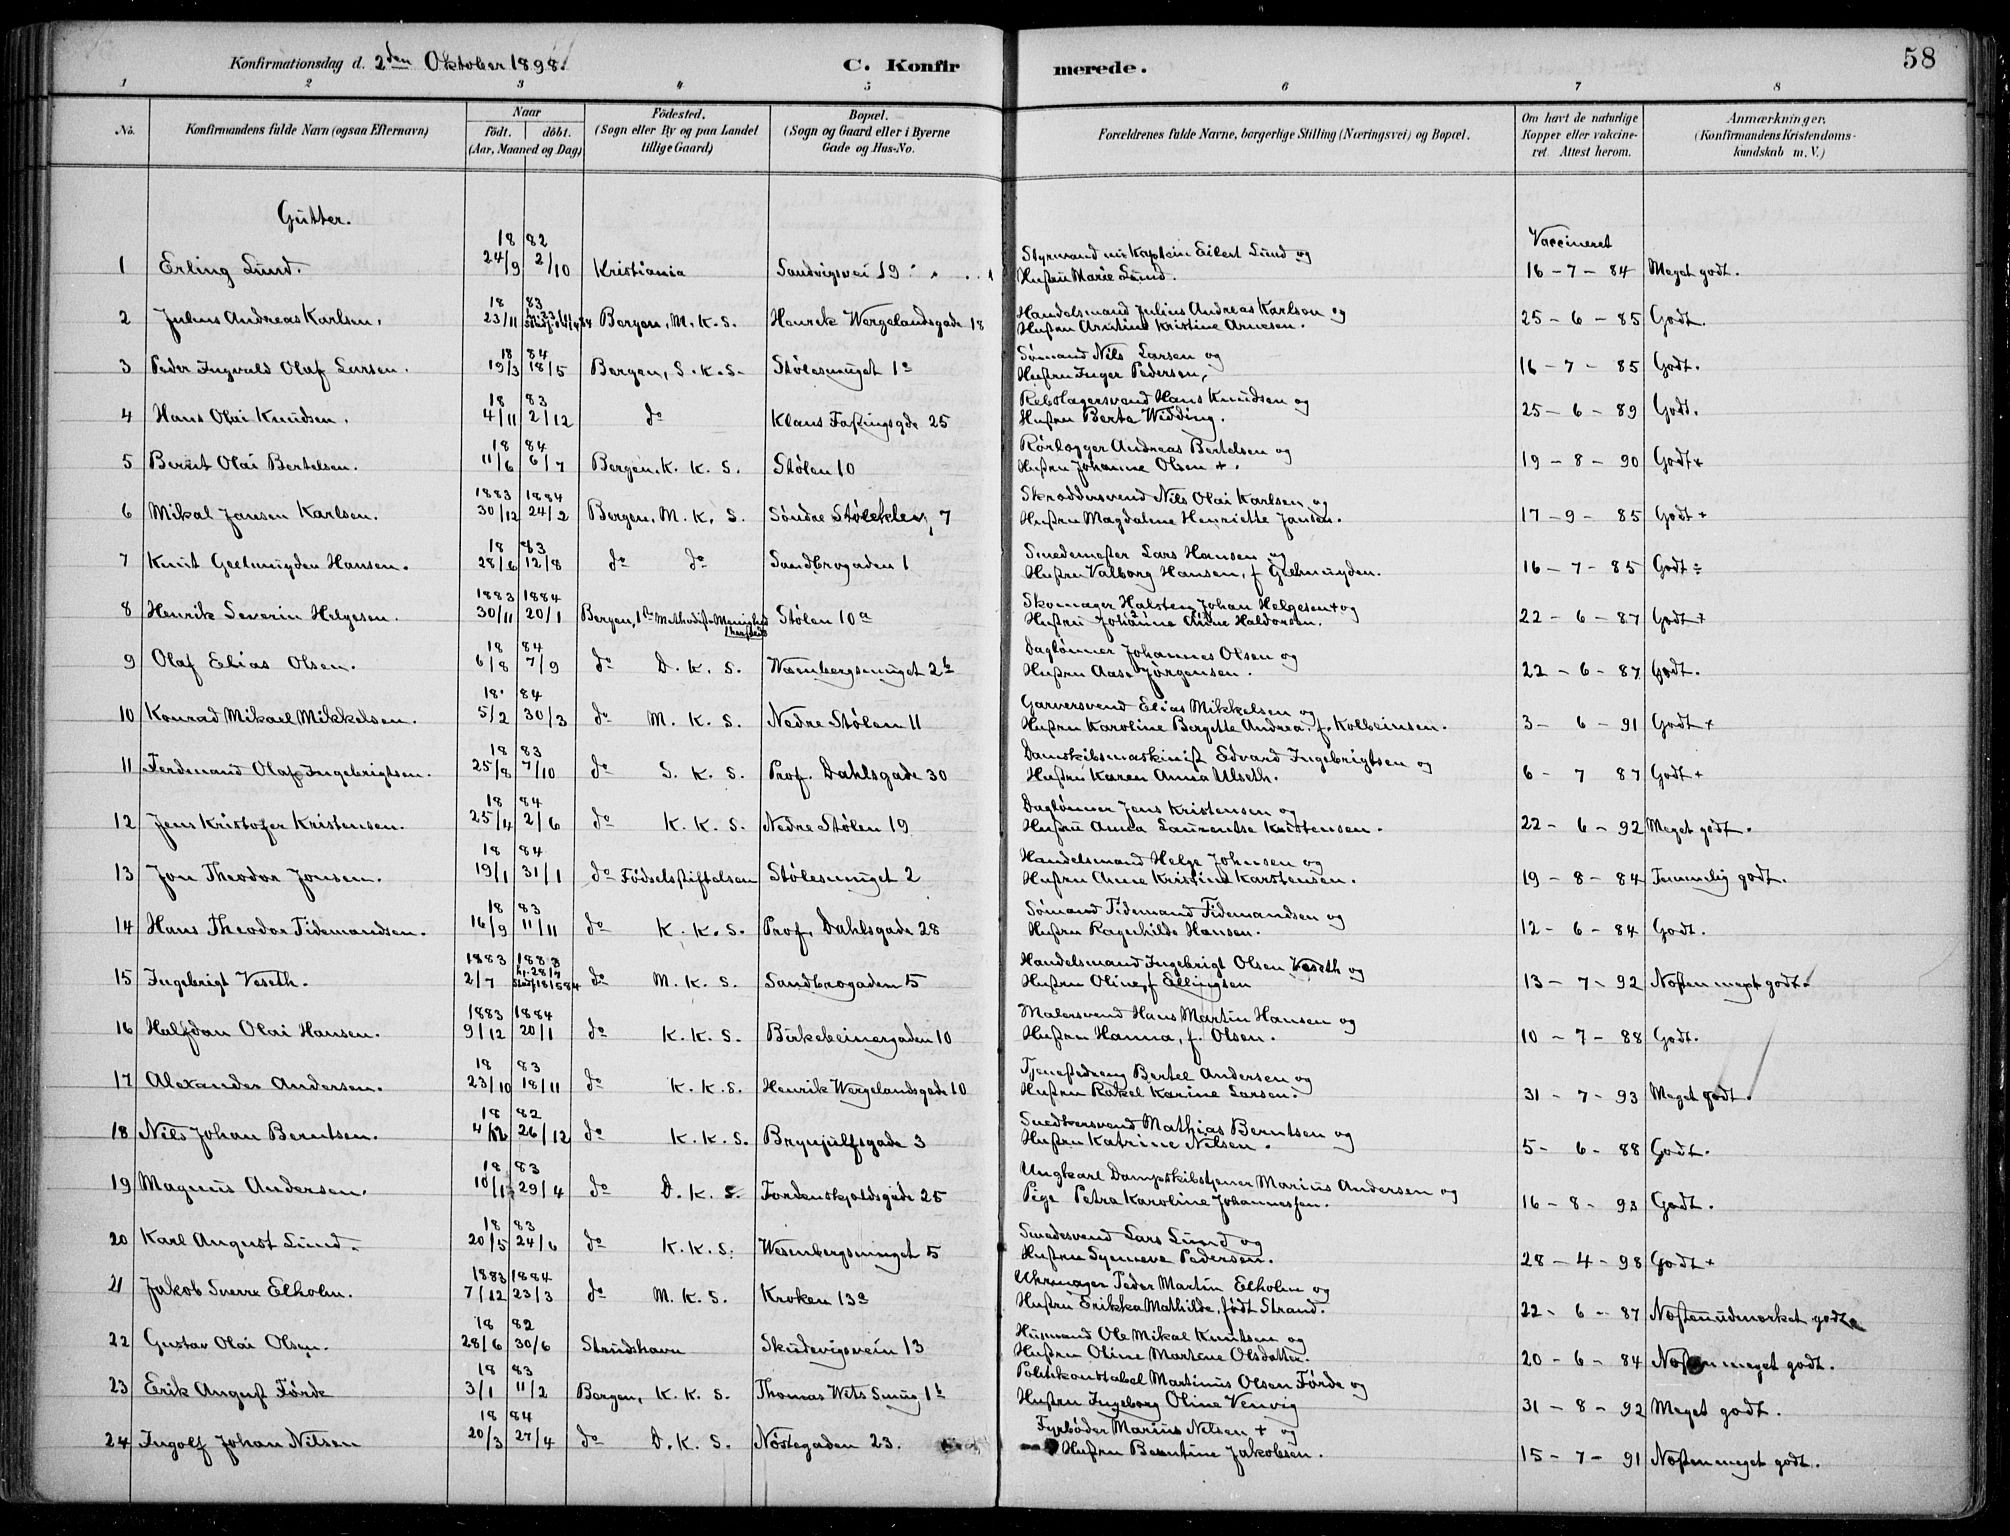 Konfirmationsdag d. 2den Oktober 1898. C. Konfirmerede. 58
1 2 3 4 5 6 7 8
No. Konfirmandens fulde Navn (ogsaa Efternavn) Naar født. døbt. (Aar, Maaned og Dag) Fødested. (Sogn eller By og paa Landet tillige Gaard) Bopæl. (Sogn og Gaard eller i Byerne Gade og Hus-No. Forældrenes fulde Navne, borgerlige Stilling (Næringsvei) og Bopæl. Om havt de naturlige Kopper eller vakcineret. Attest herom. Anmærkninger. (Konfirmandens Kristendomskundskab m. V.)
Gutter.
Vaccineret
1 Erling Lund. 1882 24/9 2/10 Kristiania Sandvigsvei 19 Styrmand nu Kaptein Eilert Lund og Hustru Marie Lund. 16-7-84 Meget godt.
2 Julius Andreas Karlsen. 1883 23/11 Bergen, M.K.S. Henrik Wergelandsgade 18 Handelsmand Julius Andreas Karlson og Hustru Kristine Arnesen. 25-6-85 Godt.
3 Peder Ingvald Olaf Larsen. 1884 19/3 18/5 Bergen, S.K.S. Stølesmuget 1a Sømand Nils Larsen og Hustru Inger Pedersen, 16-7-85 Godt.
4 Hans Olai Knudsen. 1883 4/11 2/12 do Klaus Fastingsgde 25 Rebslagersvend Hans Knudsen og Hustru Berta Widding. 25-6-89 Godt.
5 Bernt Olai Bertelsen. 1884 11/6 6/7 Bergen, K.K.S. Stølen 10 Rørlægger Andreas Bertelsen og Hustru Johanne Olsen +. 19-8-90 Godt+
6 Mikal Jansen Karlsen. 1883 30/12 1884 24/2 Bergen, M.K.S. Søndre Støleklev 7 Skræddersvend Nils Olai Karlsen og Hustru Magdalene Henriette Jansen. 17-9-85 Godt+
7 Knut Geelmuyden Hansen. 1883 28/6 12/8 do do Sandbrogaden 1 Smedemester Lars Hansen og Hustru Valborg Hansen, f Geelmuyden. 16-7-85 Godt÷
8 Henrik Severin Helgesen. 1883 30/11 1884 20/1 Bergen, 1ste Methodist-Menighed Stølen 10a Skomager Halsten Johan Helgesen + og Hustru Johanne Anne Haldorsen. 22-6-87 Godt+
9 Olaf Elias Olsen. 1884 6/8 7/9 do D.K.S. Wesenbergsmuget 2b Dagløner Johannes Olsen og Hustru Aase Jørgensen. 22-6-87 Godt.
10 Konrad Mikael Mikkelsen. 1884 5/2 30/3 do M.K.S. Nedre Stølen 11 Garversvend Elias Mikkelsen og Hustru Karoline Bergitte Andrea, f. Kolbeinsen. 3-6-91 Godt+
11 Ferdinand Olaf Ingebrigtsen. 1883 25/8 7/10 do S.K.S. Prof. Dahlsgade 30 Damskibsmaskinist Edvard Ingebrigtsen og Hustru Karen Anna Ulseth. 6-7 87 Godt+
12 Jens Kristofer Kristensen. 1884 25/4 2/6 do K.K.S. Nedre Stølen 19 Dagløner Jens Kristensen og Hustru Anna Laurentse Kristensen. 22-6-92 Meget godt.
13 Jon Theodor Jonsen. 1884 19/1 31/1 do Fødselsstiftelsen Stølesmuget 2 Handelsmand Helge Johnsen og Hustru Anne Kristine Karstensen. 19-8-84 Temmelig godt.
14 Hans Theodor Tidemandsen. 1883 16/9 11/11 do K.K.S. Prof. Dahlsgade 28 Sømand Tidemand Tidemandsen og Hustru Ragnhilde Hansen. 12-6-84 Godt.
15 Ingebrigt Veseth. 1883 2/7 1883 hj. 28/7 do M.K.S. Sandbrogaden 5 Handelsmand Ingebrigt Olsen Veseth og Hustru Oline, f Ellingsen 13-7-92 Næsten meget godt.
16 Halfdan Olai Hansen. 1883 9/12 1884 20/1 do K.K.S. Birkebeinergaden 10 Malersvend Hans Martin Hansen og Hustru Hanna, f. Olsen. 10-7-88 Godt.
17 Alexander Andersen. 1883 23/10 18/11 do K.K.S. Henrik Wergelandsgade 10 Tjenestedreng Bertel Andersen og Hustru Rakel Karine Larsen. 31-7-93 Meget godt.
18 Nils Johan Berntsen. 1882 4/12 26/12 do K.K.S. Brynjulfsgade 3 Snedkersvend Mathias Berntsen og Hustru Katrine Nilsen. 5-6-88 Godt.
19 Magnus Andersen. 1883 10/1 29/4 do D.K.S. Tordenskjoldsgade 25 Ungkarl Dampskibstjener Marius Andersen og Pige Petra Karoline Johannessen. 16-8-93 Godt.
20 Karl August Lund. 1883 20/5 24/6 do K.K.S. Wesenbergsmuget 5 Smedesvend Lars Lund og Hustru Synneva Pedersen. 28-4-98 Godt+
21 Jakob Sverre Elholm. 1883 7/12 1884 23/3 do M.K.S. Kroken 13a Uhrmager Peder Martin Elholm og Hustru Erikka Mathilde, født Strand. 22-6-87 Næsten udmærket godt.
22 Gustav Olai Olsen. 1882 28/6 30/6 Strudshavn Skudevigsveien 13 Husmand Ole Mikal Knutsen og Hustru Oline Martine Olsdatter. 20-6-84 Næsten meget godt.
23 Erik August Førde 1883 3/1 11/2 Bergen, K.K.S. Thomas Wits Smug 1b Politikonstabel Martinus Olsen Førde og Hustru Ingeborg Oline Venvig 31-8-92 Meget godt.
24 Ingolf Johan Nilsen 1884 20/3 27/4 do D.K.S. Nøstegaden 23. Fyrbøder Marius Nilsen + og Hustru Berntine Jakobsen. 15-7-91 Næsten meget godt.